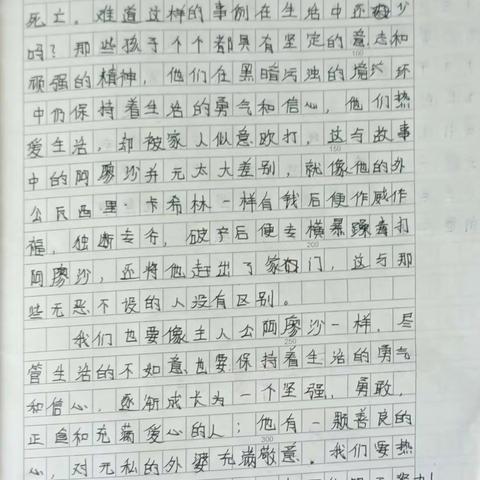 死亡。难道这样的事例在生活中还少
吗？那些孩子个个都具有坚定的意志和
顽强的精神，他们在黑暗污浊的环
中仍保持着生活的勇气和信心，他们热
爱生活，却被家人似意欧打，这与故事
中的阿廖沙并无太大差别，就像他的外
公瓦西里·卡希林一样有钱后便作威作
福，独断专行，破产后便专横暴躁毒打
阿廖沙，还将他赶出了家门，这与那
些无恶不设的人没有区别。
我们也要像主人公阿廖沙一样，尽
管生活的不如意也要保持着生活的勇气
和信心，逐渐成长为一个坚强，勇敢，
正直和充满爱心的人；他有一颗善良的
心，对无私的外婆充满敬意。我们要热
100
150
200
250
300